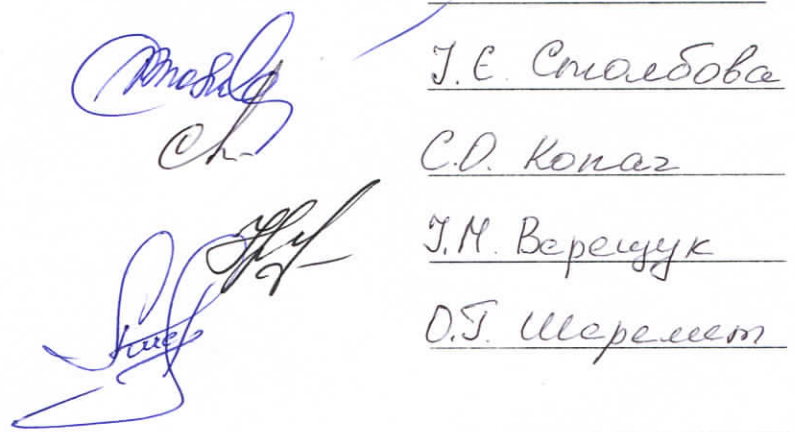 І.Є. Столбова
С.О. Копач
І.М. Верещук
О.Г. Шеремет